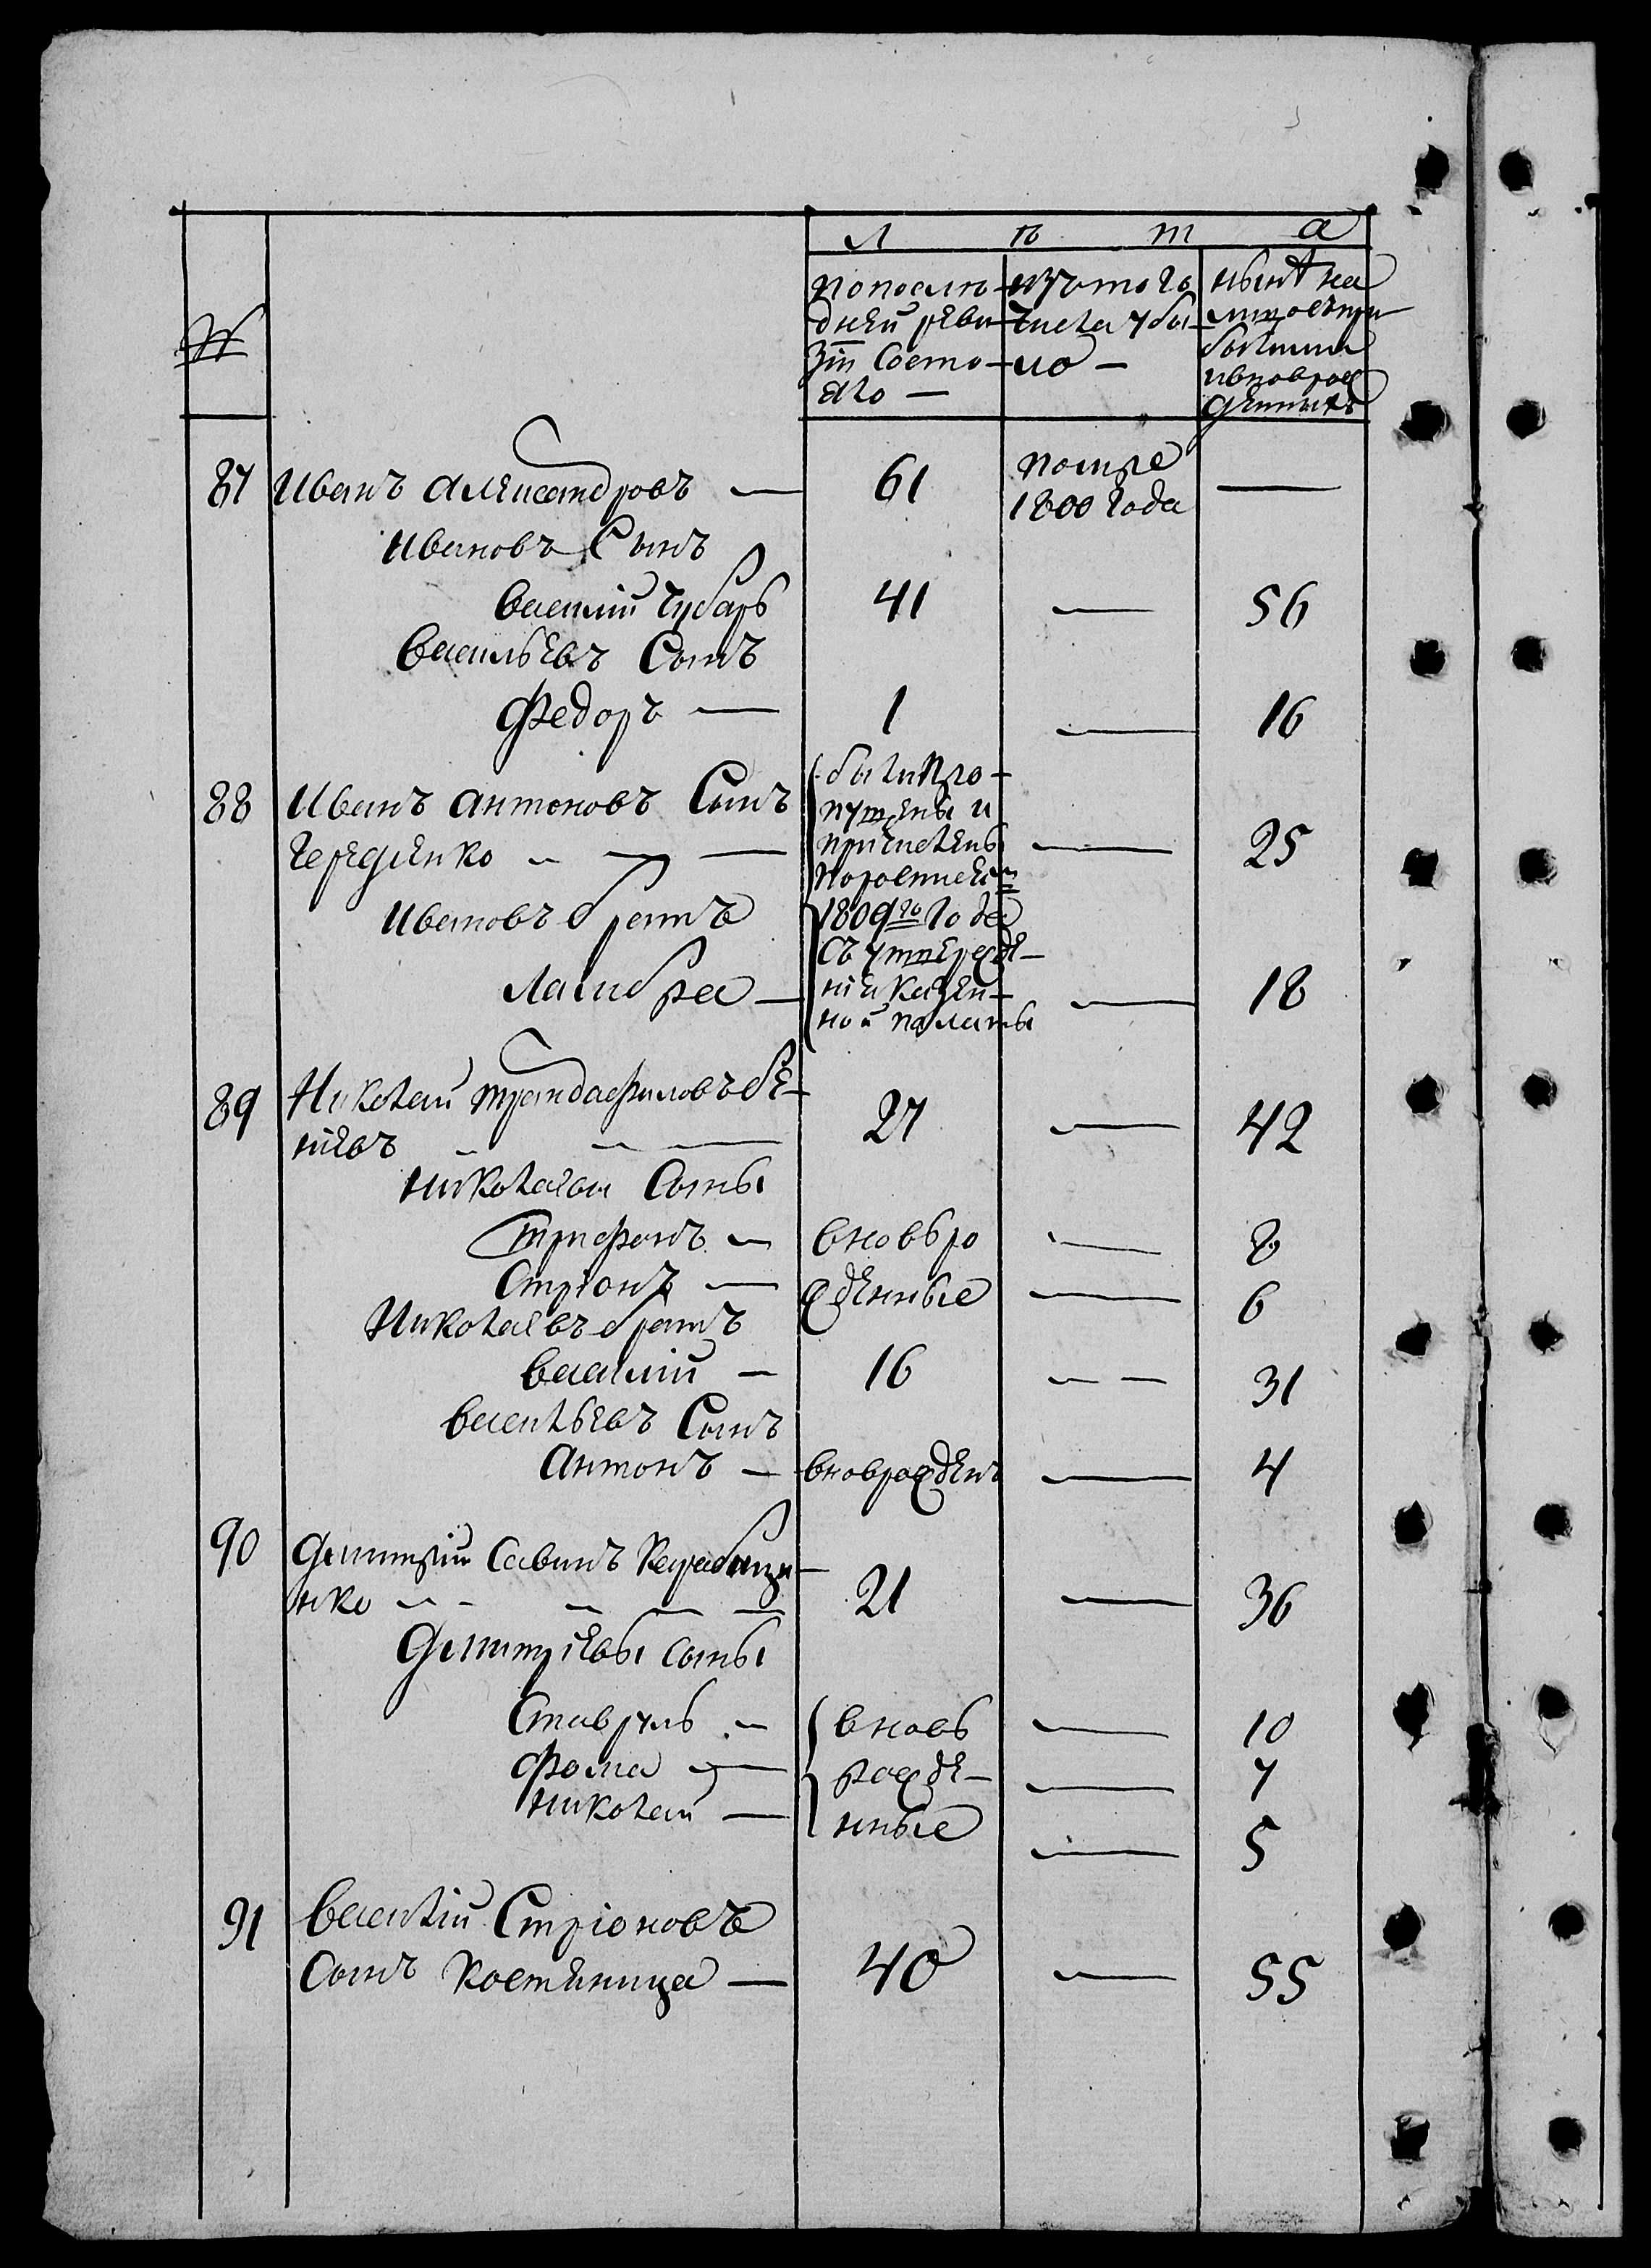 Л ѣ т а
№
попослѣ-
дней реви-
зіи состо-
яло —
изътого
числа убы-
ло —
нынѣ на
лицо съ при
былыми
ивноврож
денныхъ
87 Иванъ Александровъ — 61 помре 1800 года —
Ивановъ Сынъ
василій Чубарь 41 — 56
васильевъ Сынъ
Федоръ — 1 — 16
88 Иванъ антоновъ Сынъ
Чередненко — — — 25
были про-
пущены и
причислены
поровписки
1809го года
съ утвержде-
нія казен-
ной палаты
Ивановъ братъ
Ламбра — — 18
89 Николай трандафиловъ бѣ-
ніевъ — — 27 — 42
николаевы Сыны
трифонъ — вновь ро — 8
Стріонъ — жденные — 6
Николаевъ братъ
василій — 16 — — 31
васильевъ Сынъ
антонъ — вноврожденъ — 4
90 Дмитрій Савинъ Карабице
нко — — — 21 — 36
Дмитріевы сыны
Ставруль — вновь — 10
Фома — рожде- — 7
николай — нные — 5
91 василій Стріоновъ
Сынъ костяница — 40 — 55